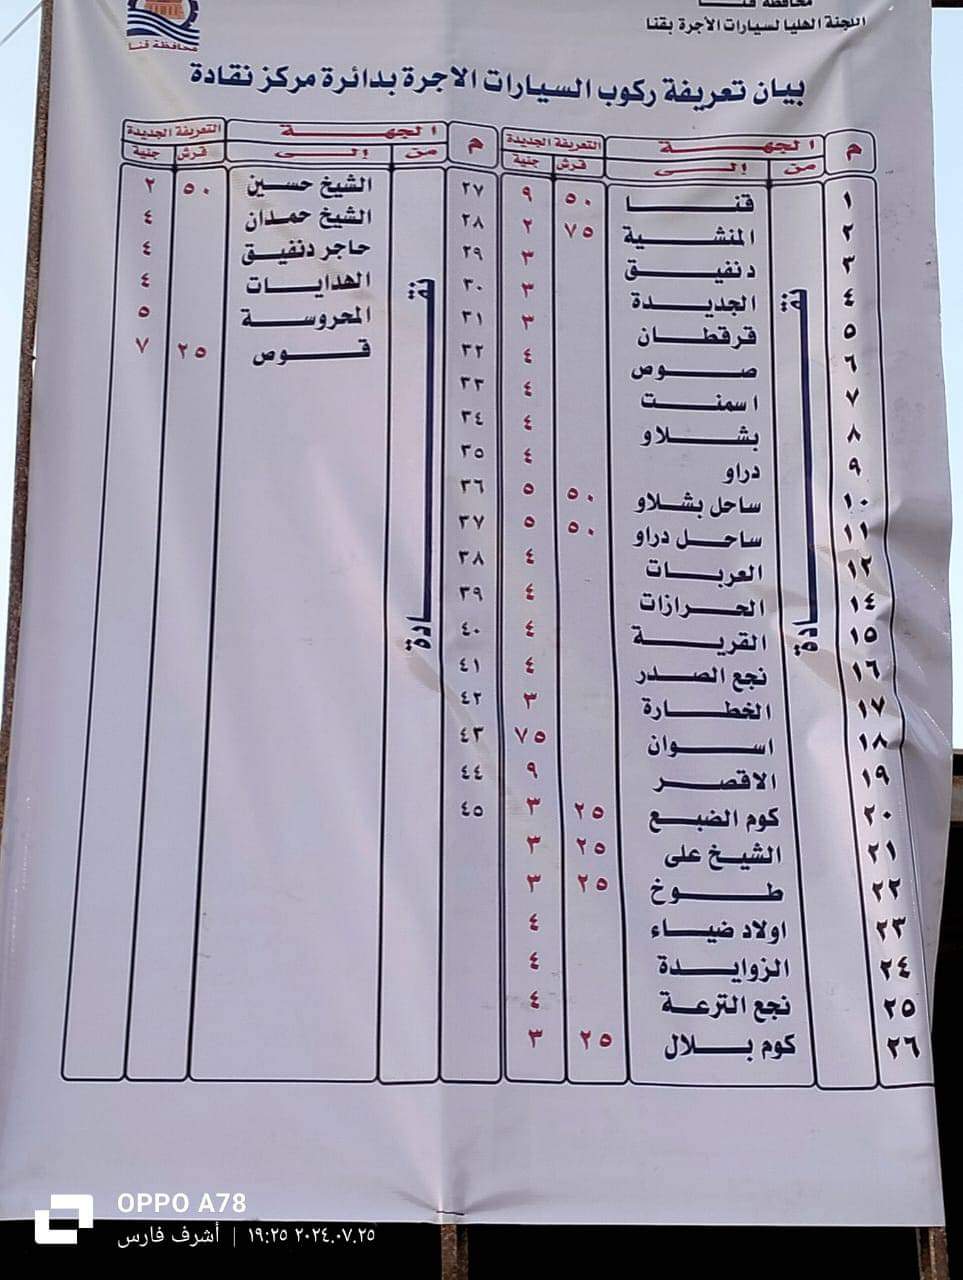 محافظة قنا
اللجنة العليا لسيارات الأجرة بقنا
محافظة قنا
بيان تعريفة ركوب السيارات الاجرة بدائرة مركز نقادة
م الجهة التعريفة الجديدة
من إلى قرش جنية
نقادة
١ قنا ٥٠ ٩
٢ المنشية ٧٥ ٢
٣ دنفيق ٣
٤ الجديدة ٣
٥ قرقطان ٣
٦ صوص ٤
٧ اسمنت ٤
٨ بشلاو ٤
٩ دراو ٤
١٠ ساحل بشلاو ٥٠ ٥
١١ ساحل دراو ٥٠ ٥
١٢ العربات ٤
١٤ الحرازات ٤
١٥ القرية ٤
١٦ نجع الصدر ٤
١٧ الخطارة ٣
١٨ اسوان ٧٥
١٩ الاقصر ٩
٢٠ كوم الضبع ٢٥ ٣
٢١ الشيخ على ٢٥ ٣
٢٢ طوخ ٢٥ ٣
٢٣ اولاد ضياء ٤
٢٤ الزوايدة ٤
٢٥ نجع الترعة ٤
٢٦ كوم بلال ٢٥ ٣
م الجهة التعريفة الجديدة
من إلى قرش جنية
نقادة
٢٧ الشيخ حسين ٥٠ ٢
٢٨ الشيخ حمدان ٤
٢٩ حاجر دنفيق ٤
٣٠ الهدايات ٤
٣١ المحروسة ٥
٣٢ قوص ٢٥ ٧
٣٣
٣٤
٣٥
٣٦
٣٧
٣٨
٣٩
٤٠
٤١
٤٢
٤٣
٤٤
٤٥
OPPO A78
٢٠٢٤.٠٧.٢٥ ١٩:٢٥ | أشرف فارس